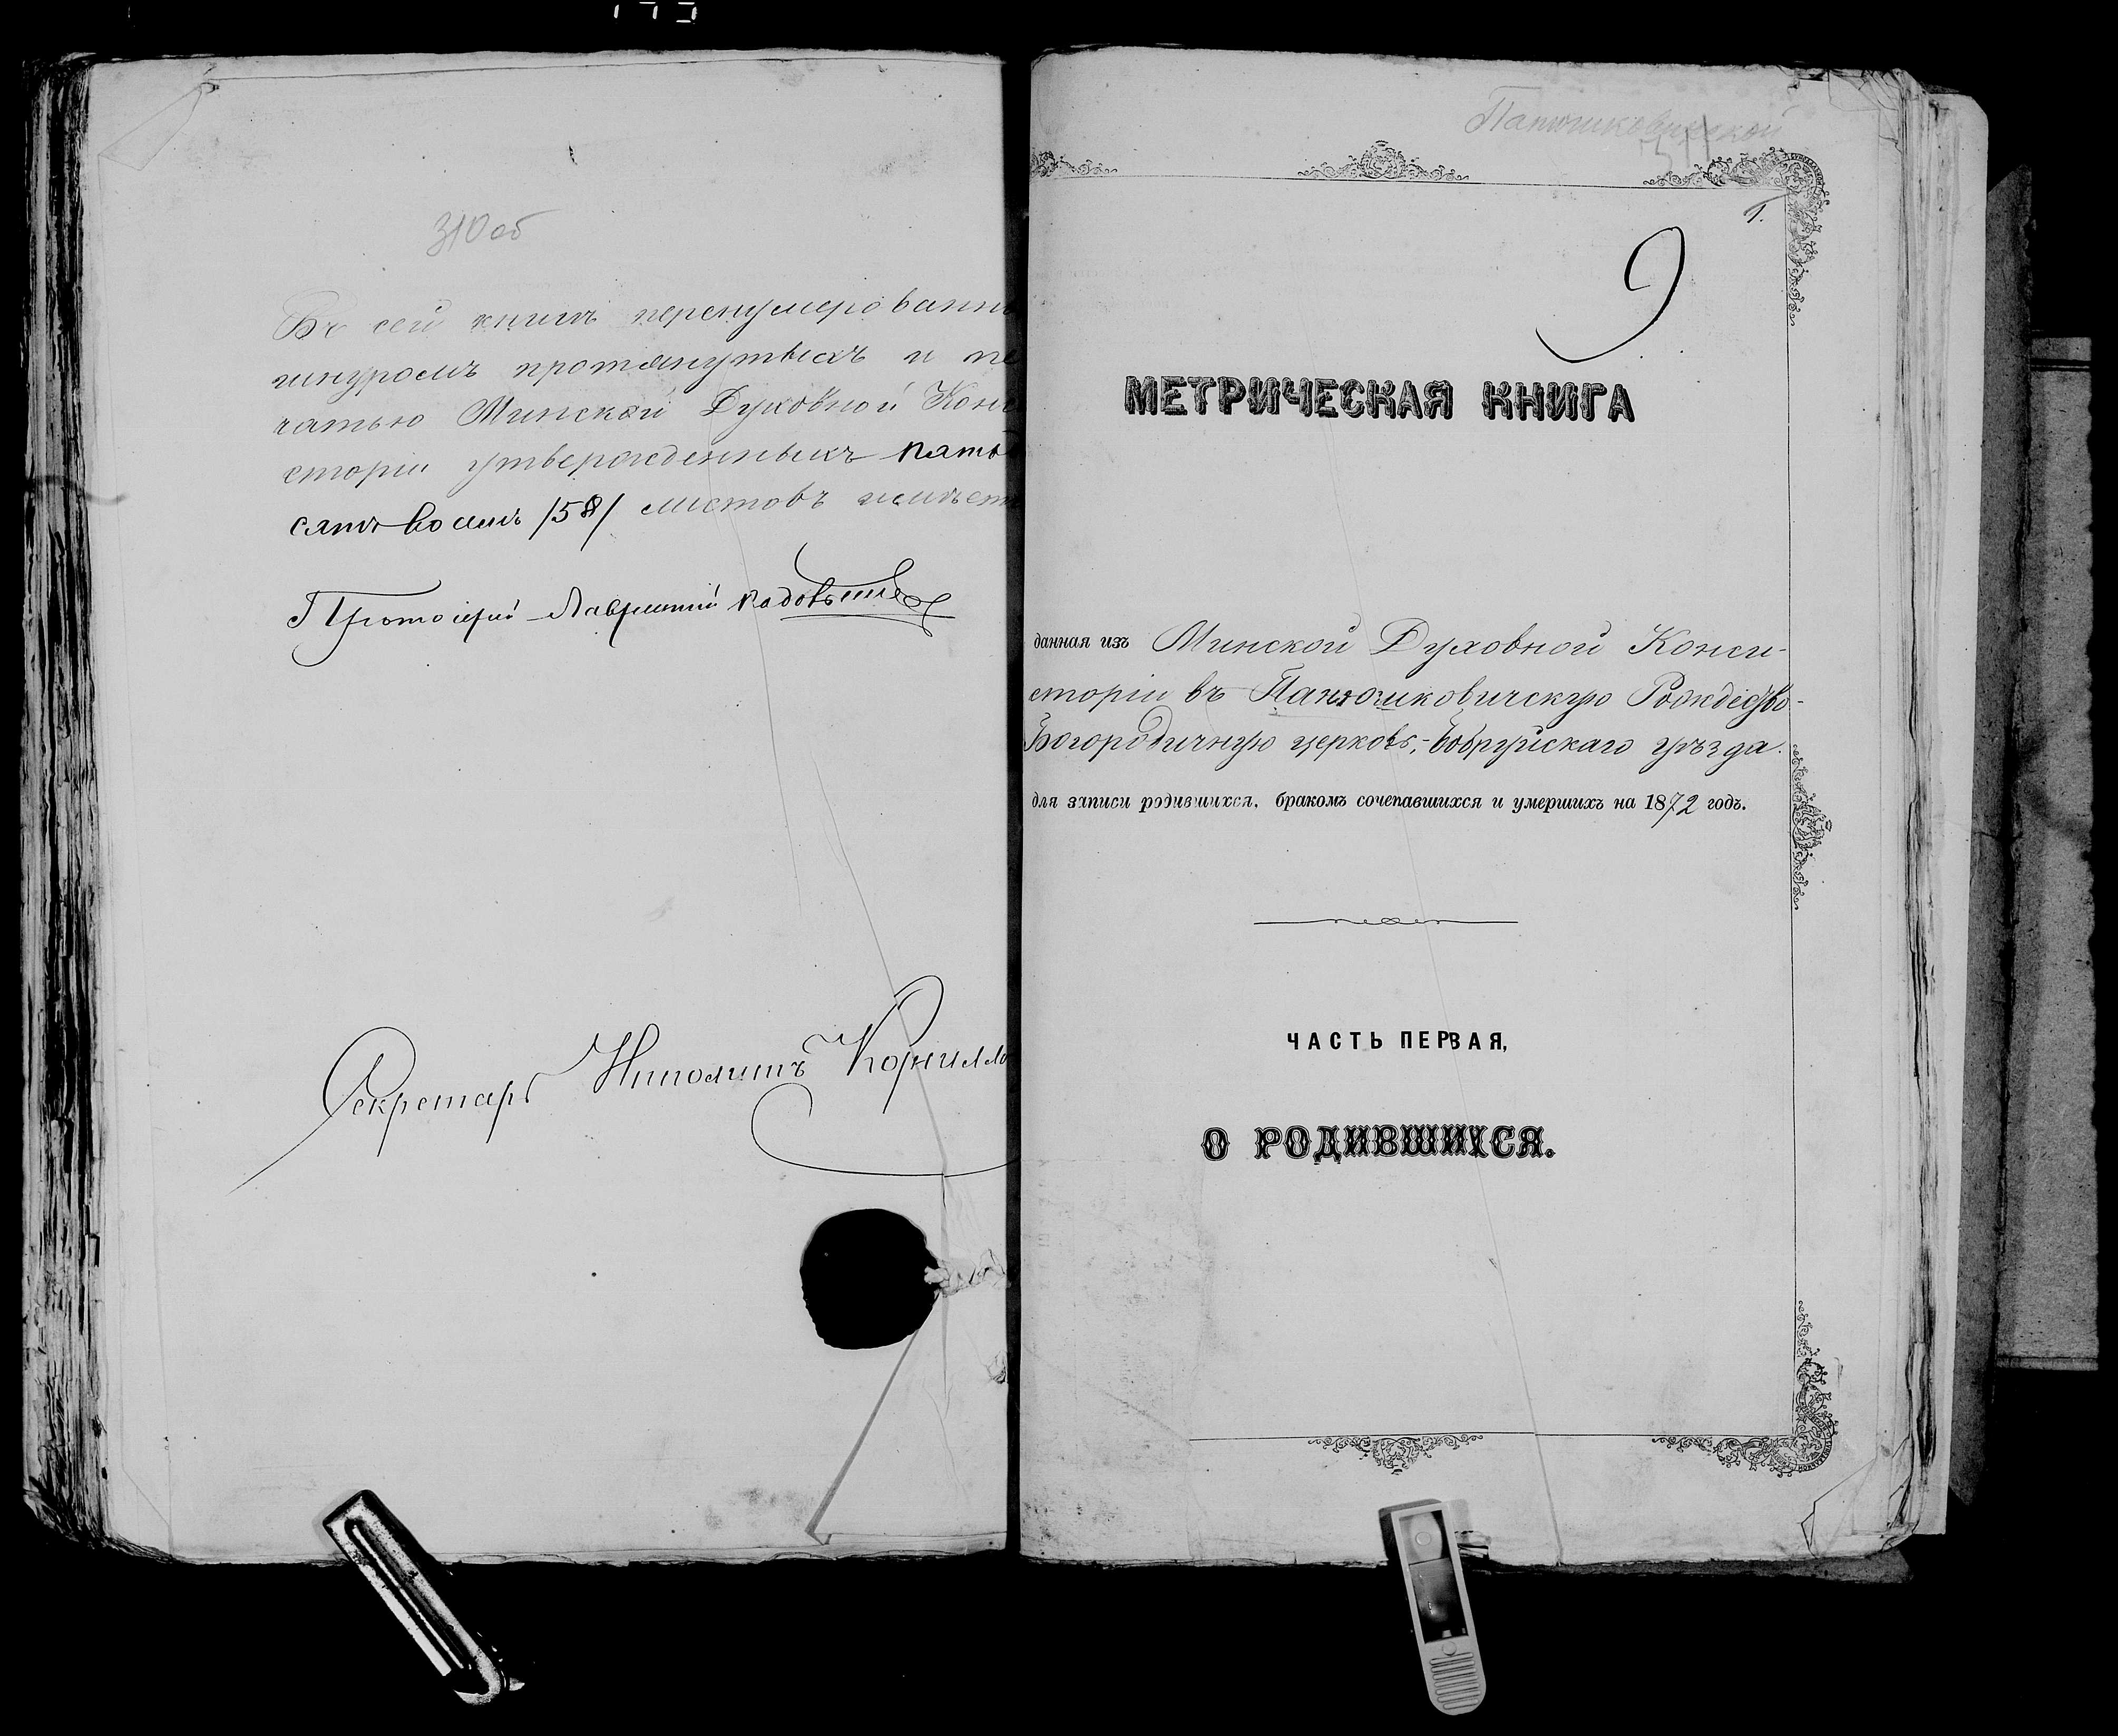 310 об
Въ сей книгѣ перенумерованн
шнуромъ протянутыхъ и пе
чатью Минской Духовной Конс
сторіи утвержденныхъ пять
сятъ восемь /58/ листовъ имѣет
Протоіерей Лаврентій
Секретарь Ипполитъ Корнилло
Панюшковичской
311
1.
9
МЕТРИЧЕСКАЯ КНИГА
данная изъ Минской Духовной Конси-
сторіи въ Панюшковичскую Рождество-
Богородичную церковь, Бобруйскаго уѣзда.
для записи родившихся, бракомъ сочетавшихся и умершихъ на 1872 годъ.
ЧАСТЬ ПЕРВАЯ,
О РОДИВШИХСЯ.